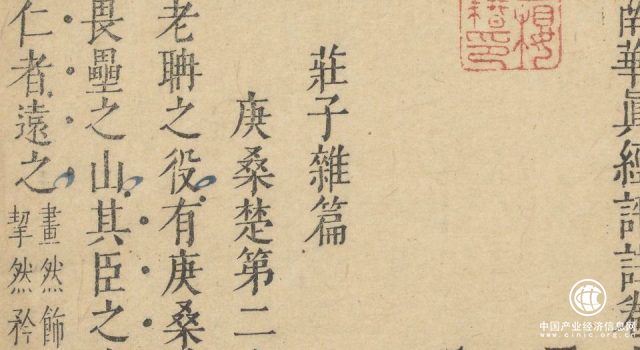 南華真經評註卷
莊子雜篇
庚桑楚第二
老聃之役有庚桑
畏壘之山其臣之
仁者遠之
畫然飾
挈然矜
中国产业经济信息网
www.cinic.org.cn